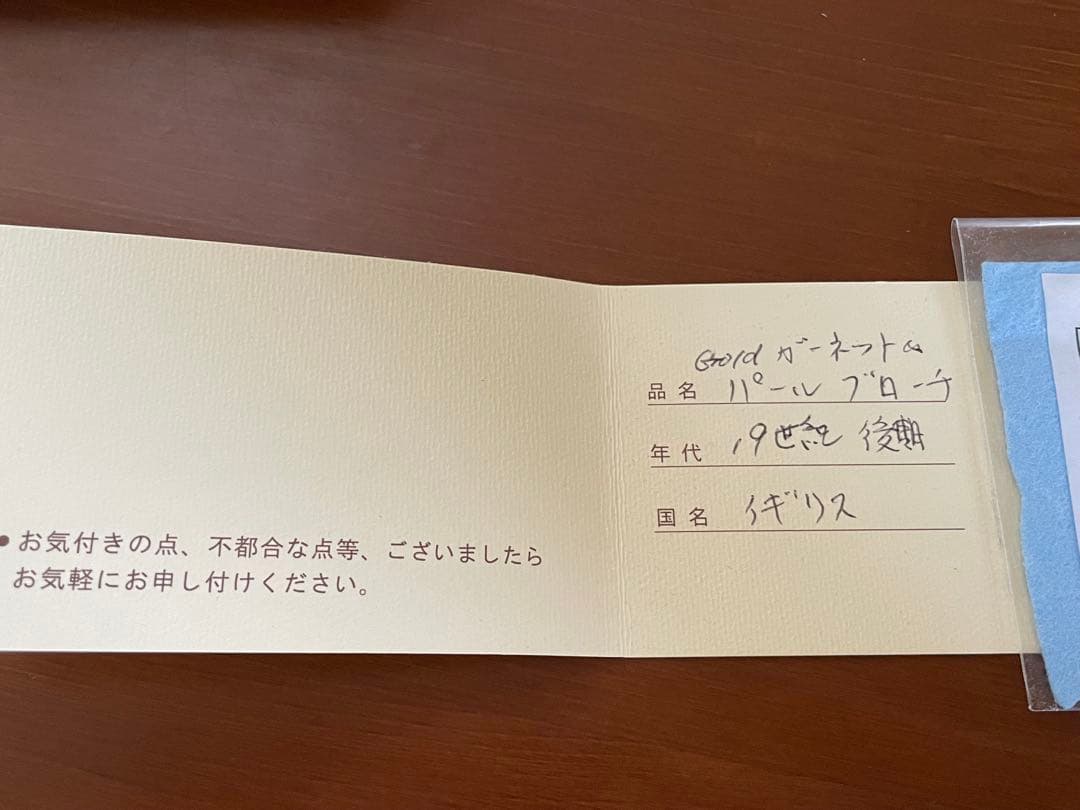 ●お気付きの点、不都合な点等、ございましたら
お気軽にお申し付けください。
Gold ガーネット&
品名 パール ブローチ
年代 19世紀 後期
国名 イギリス